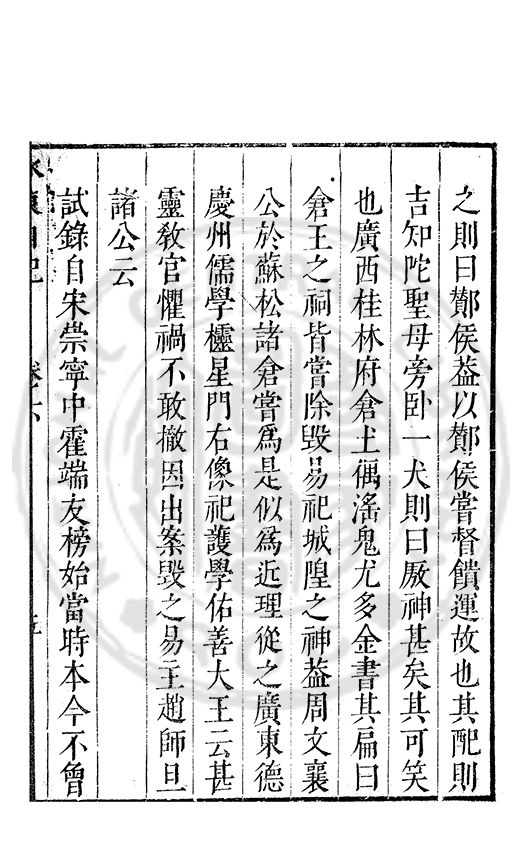 之則曰酇侯葢以酇侯嘗督饋運故也其配則
吉知陀聖母旁卧一犬則曰厫神甚矣其可笑
也廣西桂林府倉土偶滛鬼尤多金書其扁曰
倉王之祠皆嘗除毁易祀城隍之神葢周文襄
公於蘇松諸倉嘗爲是似爲近理從之廣東德
慶州儒學櫺星門右像祀護學佑善大王云甚
靈敎官懼禍不敢撤因出案毁之易主趙師旦
諸公云
試錄自宋崇寧中霍端友榜始當時本今不曾
水東日記
卷六